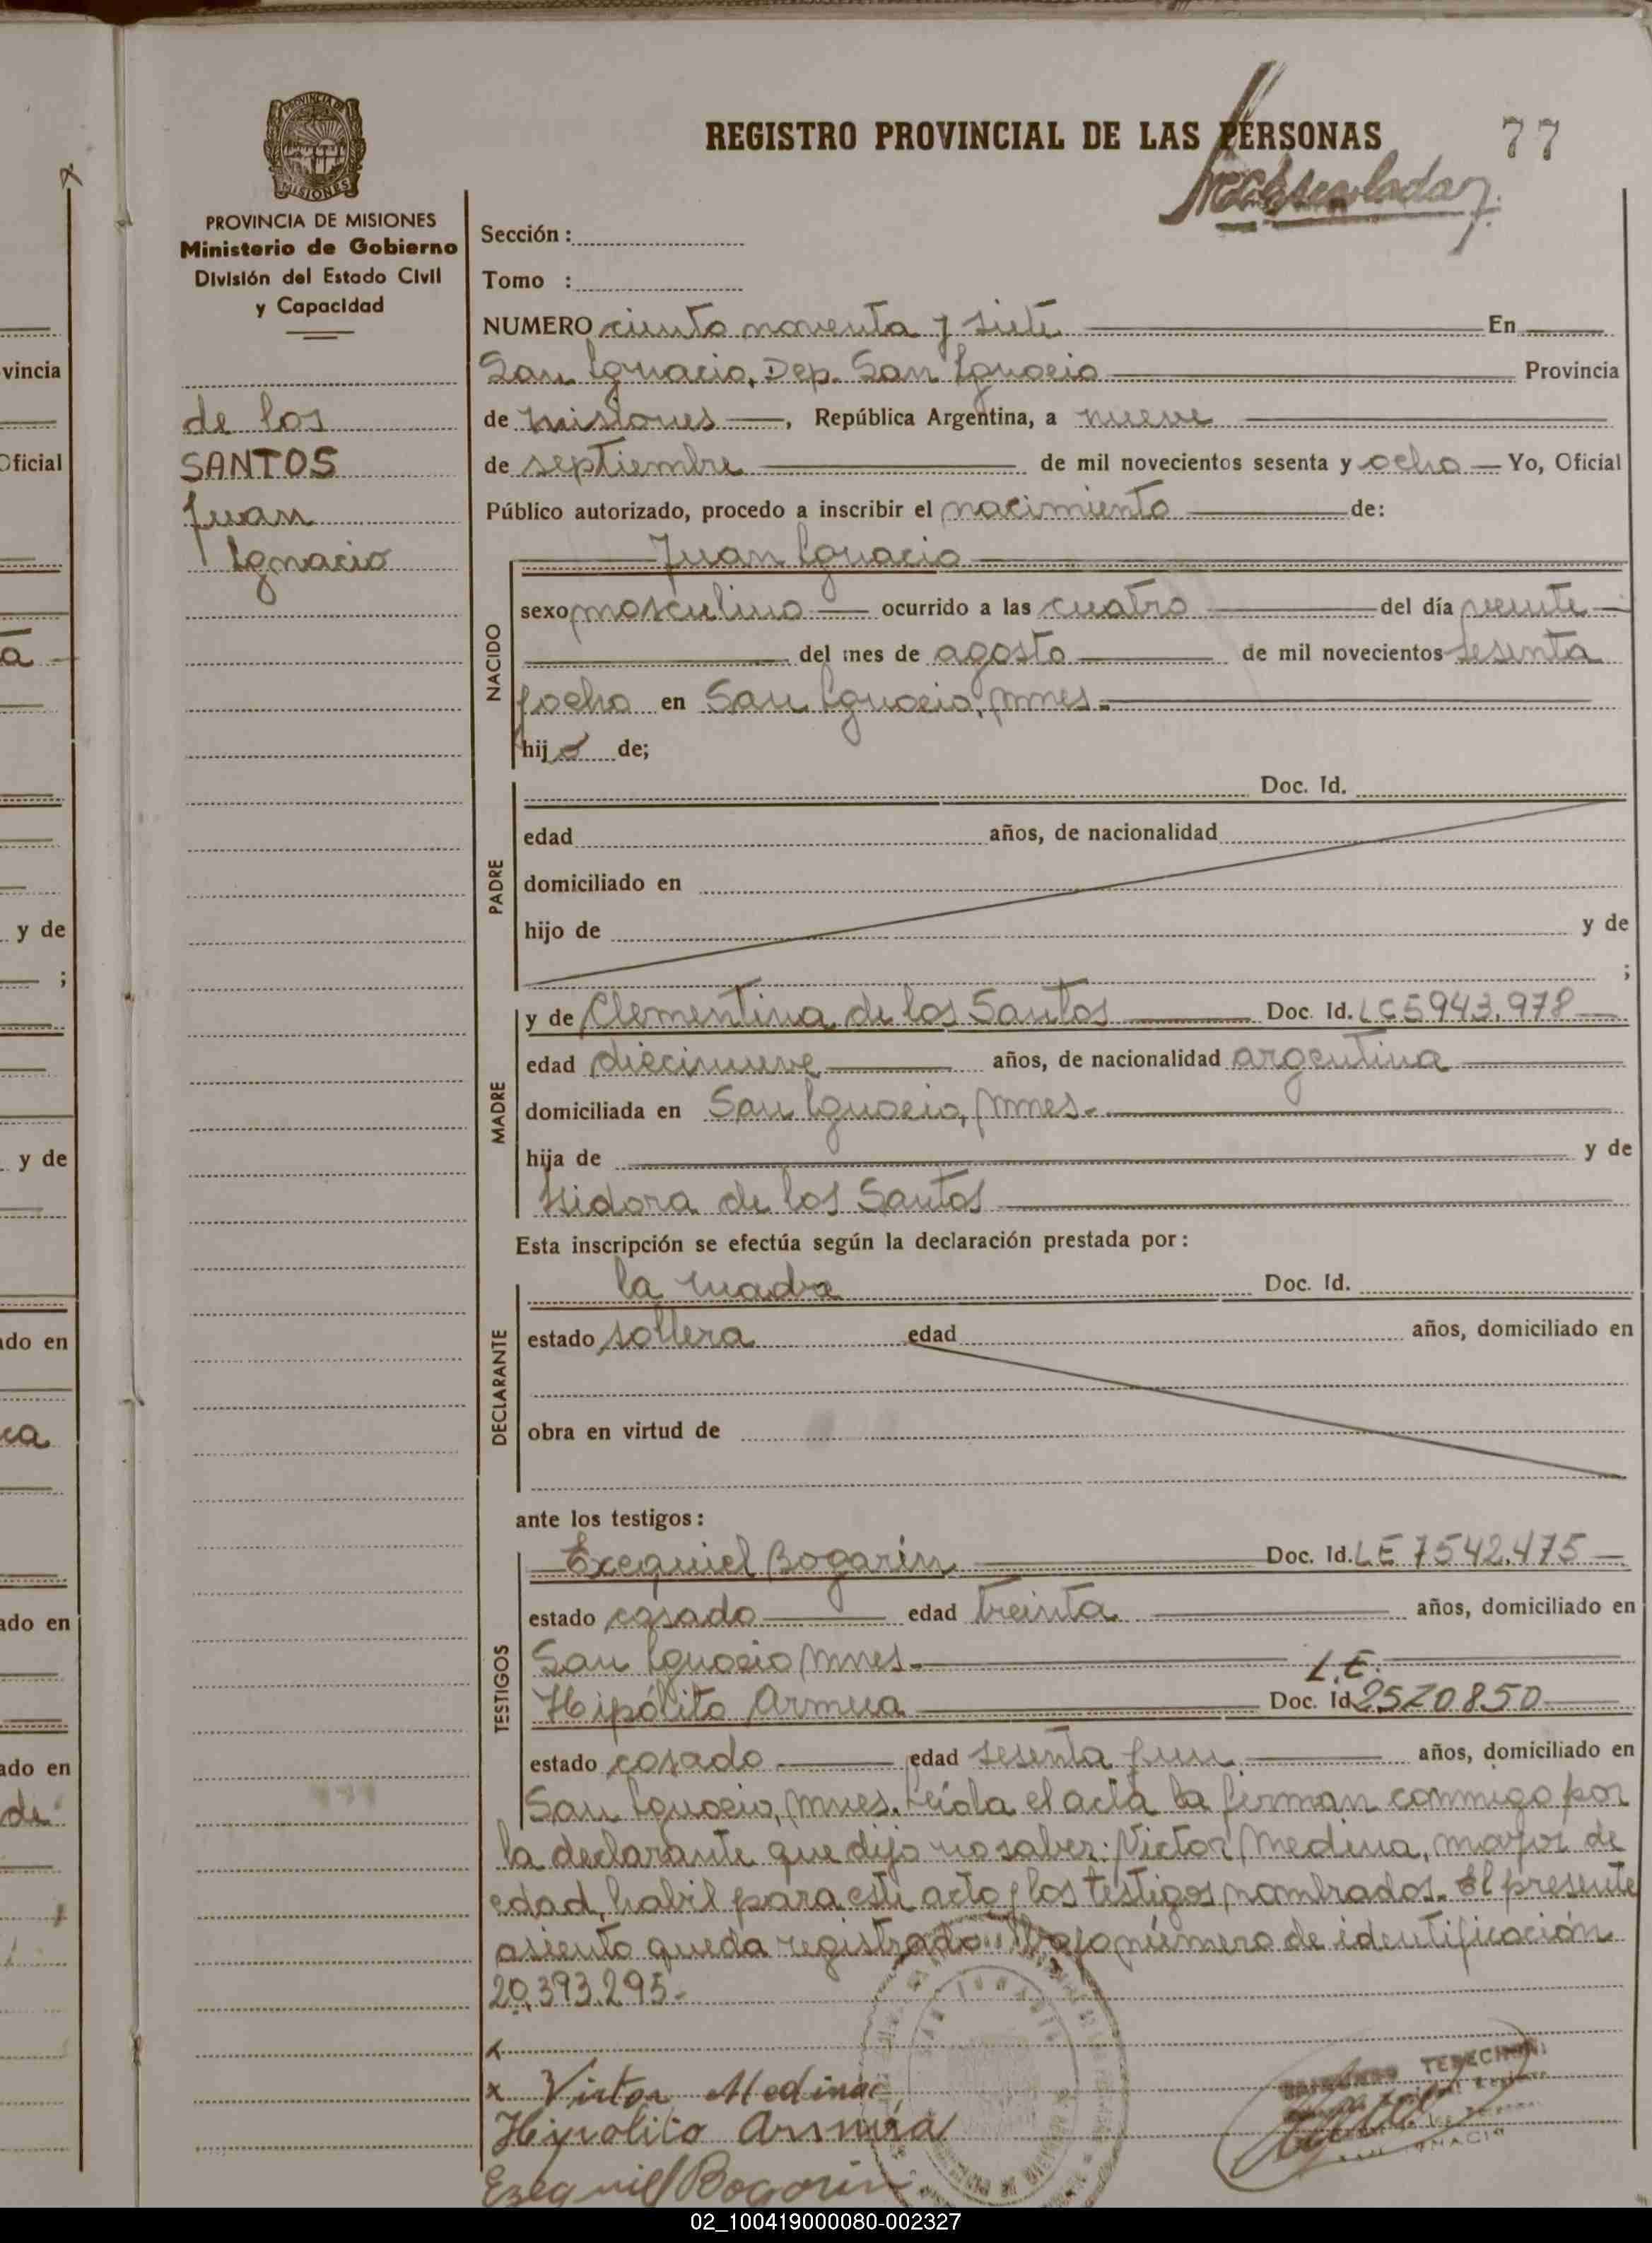 REGISTRO PROVINCIAL DE LAS PERSONAS 77
PROVINCIA DE MISIONES
Ministerio de Gobierno
División del Estado Civil
y Capacidad
de los
SANTOS
Juan
Ignacio
Sección :
Tomo :
NUMERO ciento noventa y siete En
San Ignacio, Dep. San Ignacio Provincia
de Misiones, República Argentina, a nueve
de septiembre de mil novecientos sesenta y ocho Yo, Oficial
Público autorizado, procedo a inscribir el nacimiento de:
Juan Ignacio
NACIDO
sexo masculino ocurrido a las cuatro del día veinte
del mes de agosto de mil novecientos sesenta
y ocho en San Ignacio, Mnes.
hijo de;
PADRE
Doc. Id.
edad años, de nacionalidad
domiciliado en
hijo de y de
;
MADRE
y de Clementina de los Santos Doc. Id. LC 5943.978
edad diecinueve años, de nacionalidad argentina
domiciliada en San Ignacio, Mnes.
hija de y de
Isidora de los Santos
Esta inscripción se efectúa según la declaración prestada por:
DECLARANTE
la madre Doc. Id.
estado soltera edad años, domiciliado en
obra en virtud de
ante los testigos:
TESTIGOS
Exequiel Bogarín Doc. Id. LE 7542.475
estado casado edad treinta años, domiciliado en
San Ignacio Mnes.
L.E.
Hipólito Armua Doc. Id 2520850
estado casado edad sesenta y un años, domiciliado en
San Ignacio, Mnes. Leida el acta la firman conmigo por
la declarante que dijo no saber: Victor Medina, mayor de
edad, habil para este acto y los testigos nombrados. El presente
asiento queda registrado bajo número de identificación
20.393.295.
x Victor Medina
Hipolito Armúa
Ezequiel Bogarin
vincia
Oficial
y de
;
y de
ado en
ado en
ado en
de
02_100419000080-002327